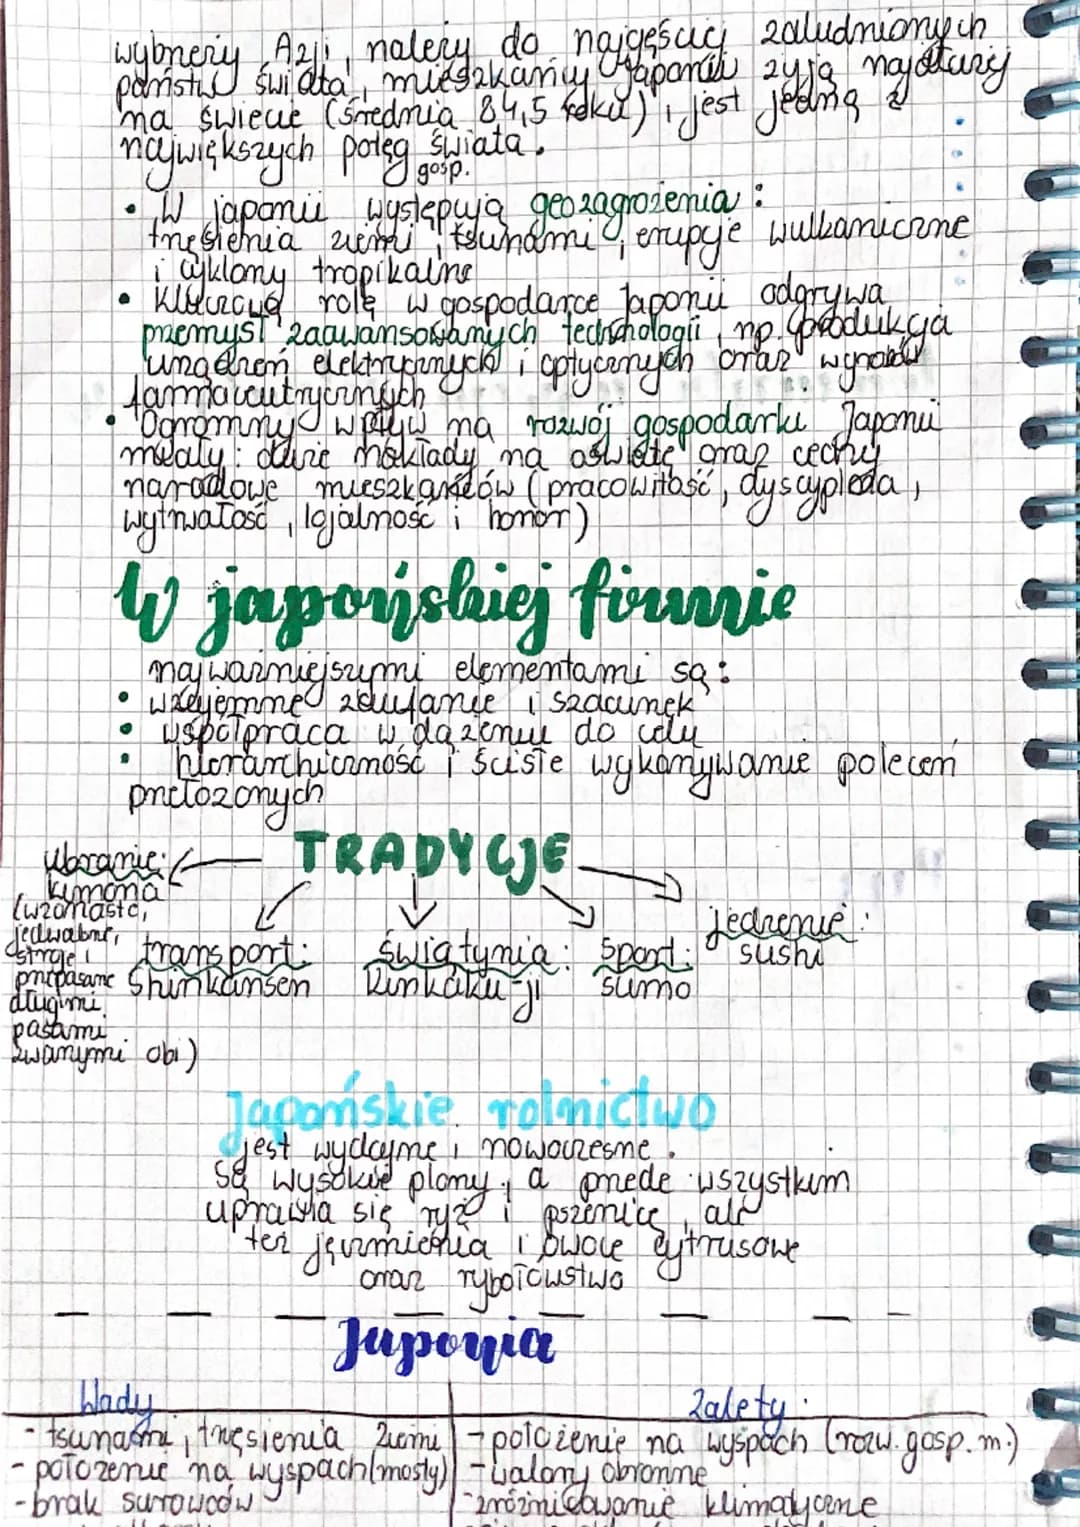 wybrzeży Azji, należy do najgęściej zaludnionych
państw świata, mieszkańcy Japonii żyją najdłużej
na świecie (średnia 84,5 roku), jest jedną z
największych potęg świata.
gosp.
• W japonii występują geozagrożenia:
trzęsienia ziemi, tsunami, erupcje wulkaniczne
i cyklony tropikalne
• Kluczową rolę w gospodarce Japonii odgrywa
przemysł zaawansowanych technologii, np. produkcja
urządzeń elektrycznych i optycznych oraz wyrobów
farmaceutycznych
• Ogromny wpływ na rozwój gospodarki Japonii
miały: duże nakłady na oświatę oraz cechy
narodowe mieszkańców (pracowitość, dyscyplina,
wytrwałość, lojalność i honor)
W japońskiej firmie
najważniejszymi elementami są:
• wzajemne zaufanie i szacunek
• współpraca w dążeniu do celu
• hierarchiczność i ścisłe wykonywanie poleceń
przełożonych
TRADYCJE
ubranie:
kimona
(wzorzaste,
jedwabne,
stroje
przepasane
długimi
pasami
zwanymi obi)
transport:
Shinkansen
świątynia:
Kinkaku-ji
sport:
sumo
jedzenie:
sushi
Japońskie rolnictwo
jest wydajne i nowoczesne.
Są wysokie plony, a przede wszystkim
uprawia się ryż i pszenicę, ale
też jęczmienia i owoce cytrusowe
oraz rybołówstwo
Japonia
Wady
- tsunami, trzęsienia ziemi
- położenie na wyspach (mosty)
- brak surowców
Zalety:
- położenie na wyspach (rozw. gosp. m.)
- walory obronne
- zróżnicowanie klimatyczne